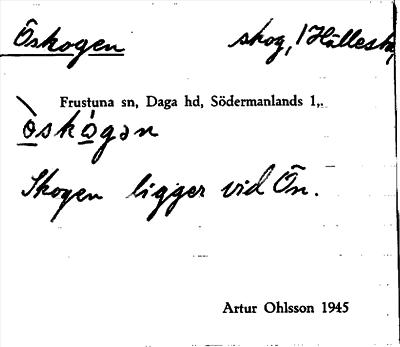 Öskogen skog, Hälles
Frustuna sn, Daga hd, Södermanlands l,.
òskógən
Skogen ligger vid Ön.
Artur Ohlsson 1945